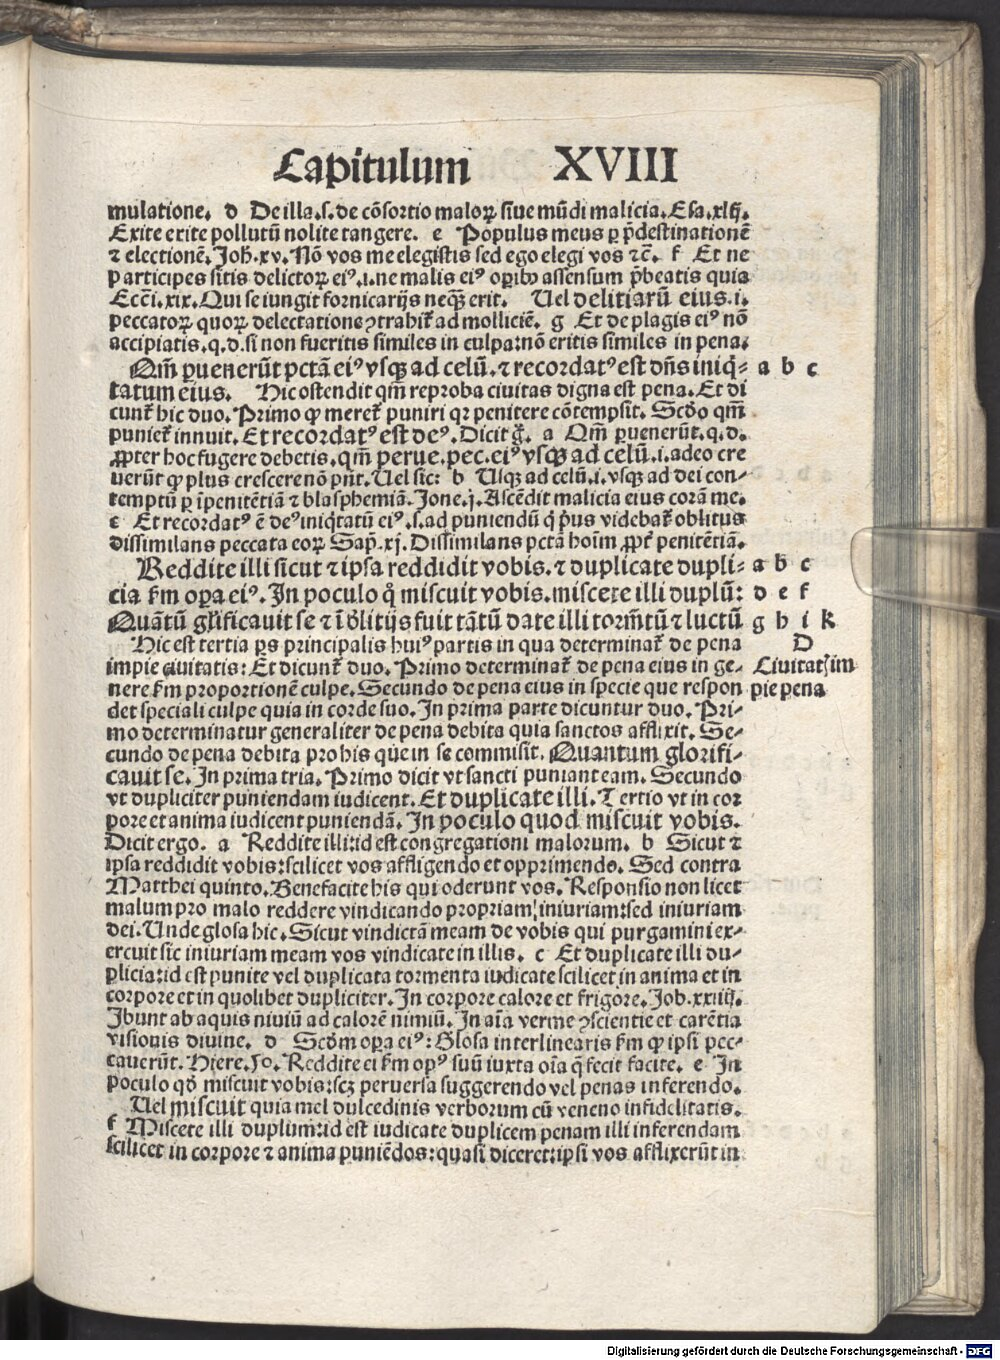 Capitulum XVIII
mulatione. d De illa.s.de cōsortio maloꝝ siue mūdi malicia. Esa.xlij.
Exite exite pollutū nolite tangere. e Populus meus ꝑ p̄destinationē
⁊ electionē. Joh̄.xv. Nō vos me elegistis sed ego elegi vos ⁊c̄. f Et ne
participes sitis delictoꝝ eiꝰ.i.ne malis eiꝰ oꝑibꝰ assensum p̄beatis quia
Ecci̅.xix. Qui se iungit fornicarijs neqꝫ erit. Uel delitiarū eius.i.
peccatoꝝ quoꝝ delectatione ꝯtrahit̄ ad molliciē. g Et de plagis eiꝰ nō
accipiatis.q.d.si non fueritis similes in culpa:nō eritis similes in pena.
Qm̄ ꝑuenerūt pctā eiꝰ vsqꝫ ad celū.⁊ recordatꝰ est dn̄s iniq̄- a b c
tatum eius. Hic ostendit qm̄ reproba ciuitas digna est pena. Et di
cunt̄ hic duo. Primo ꝙ meret̄ puniri qꝛ penitere cōtempsit. Scd̄o qm̄
puniet̄ innuit. Et recordatꝰ est deꝰ. Dicit g̊. a Qm̄ ꝑuenerūt.q.d.
ꝓpter hoc fugere debetis.qm̄ perue.pec.eiꝰ vsqꝫ ad celū.i.adeo cre
uerūt ꝙ plus crescere nō pn̄t. Uel sic: b Usqꝫ ad celū.i.vsqꝫ ad dei con-
temptū ꝑ īpenitētiā ⁊ blasphemiā. Jone.j. Ascēdit malicia eius corā me.
c Et recordatꝰ ē deꝰ iniq̄tatū eiꝰ.s.ad puniendū q̄ p̄us videbat̄ oblitus
dissimilans peccata eoꝝ Sap̄.xj. Dissimilans pctā hoīm ꝓpt̄ penitētiā.
Reddite illi sicut ⁊ ipsa reddidit vobis.⁊ duplicate dupli- a b c
cia s̄m oꝑa eiꝰ. In poculo q̊ miscuit vobis.miscete illi duplū: d e f
Quātū gl̄ificauit se ⁊ ī d̄litijs fuit tātū date illi torm̄tū ⁊ luctū g h i k
Hic est tertia ꝑs principalis huiꝰ partis in qua determinat̄ de pena D
impie ciuitatis: Et dicunt̄ duo. Primo determinat̄ de pena eius in ge- Ciuitatꝭ im
nere s̄m proportionē culpe. Secundo de pena eius in specie que respon pie pena
det speciali culpe quia in corde suo. In prima parte dicuntur duo. Pri-
mo determinatur generaliter de pena debita quia sanctos afflixit. Se-
cundo de pena debita pro his que in se commisit. Quantum glorifi-
cauit se. In prima tria. Primo dicit vt sancti puniant eam. Secundo
vt dupliciter puniendam iudicent. Et duplicate illi. Tertio vt in cor
pore et anima iudicent puniendā. In poculo quod miscuit vobis.
Dicit ergo. a Reddite illi:id est congregationi malorum. b Sicut ⁊
ipsa reddidit vobis:scilicet vos affligendo et opprimendo. Sed contra
Matthei quinto. Benefacite his qui oderunt vos. Responsio non licet
malum pro malo reddere vindicando propriam iniuriam:sed iniuriam
dei. Unde glosa hic. Sicut vindictā meam de vobis qui purgamini ex-
ercuit sic iniuriam meam vos vindicate in illis. c Et duplicate illi du-
plicia:id est punite vel duplicata tormenta iudicate scilicet in anima et in
corpore et in quolibet dupliciter. In corpore calore et frigore. Job.xxiiij.
Ibunt ab aquis niuiū ad calorē nimiū. In aīa verme ꝯscientie et carētia
visionis diuine. d Scd̄m oꝑa eiꝰ: Glosa interlinearis s̄m ꝙ ipsi pec-
cauerūt. Hiere.50. Reddite ei s̄m opꝰ suū iuxta oīa q̄ fecit facite. e In
poculo qd̄ miscuit vobis:scꝫ peruersa suggerendo vel penas inferendo.
Uel miscuit quia mel dulcedinis verborum cū veneno infidelitatis.
f Miscete illi duplum:id est iudicate duplicem penam illi inferendam
scilicet in corpore ⁊ anima puniēdos:quasi diceret:ipsi vos afflixerūt in
Digitalisierung gefördert durch die Deutsche Forschungsgemeinschaft - DFG